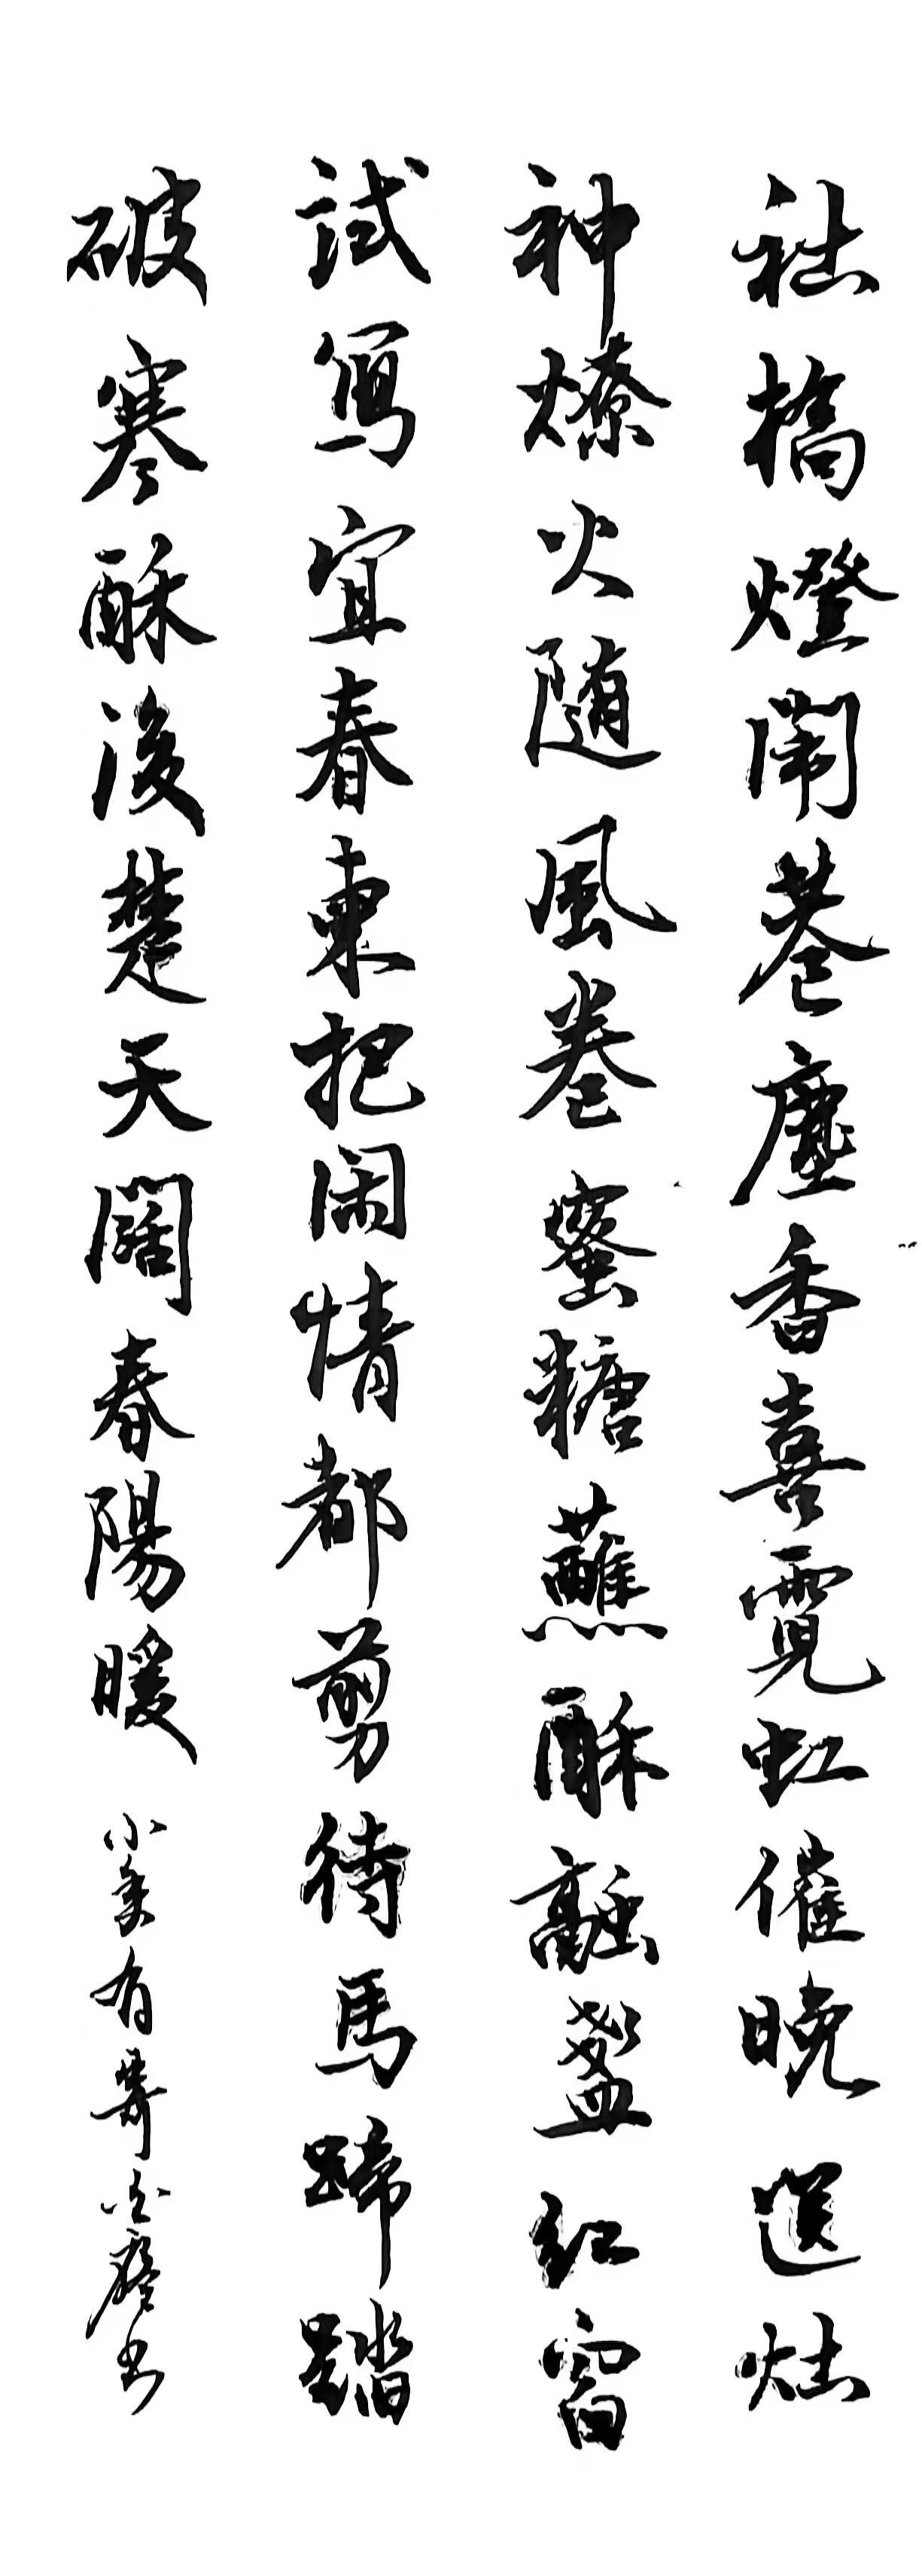 社橋燈鬧巷塵香喜霓虹催晚送灶
神燎火随風卷蜜糖蘸酥融盞紅窗
試寫宜春柬把闲情都剪待馬蹄踏
破寒酥後楚天闊春陽暖 小年有寄 書